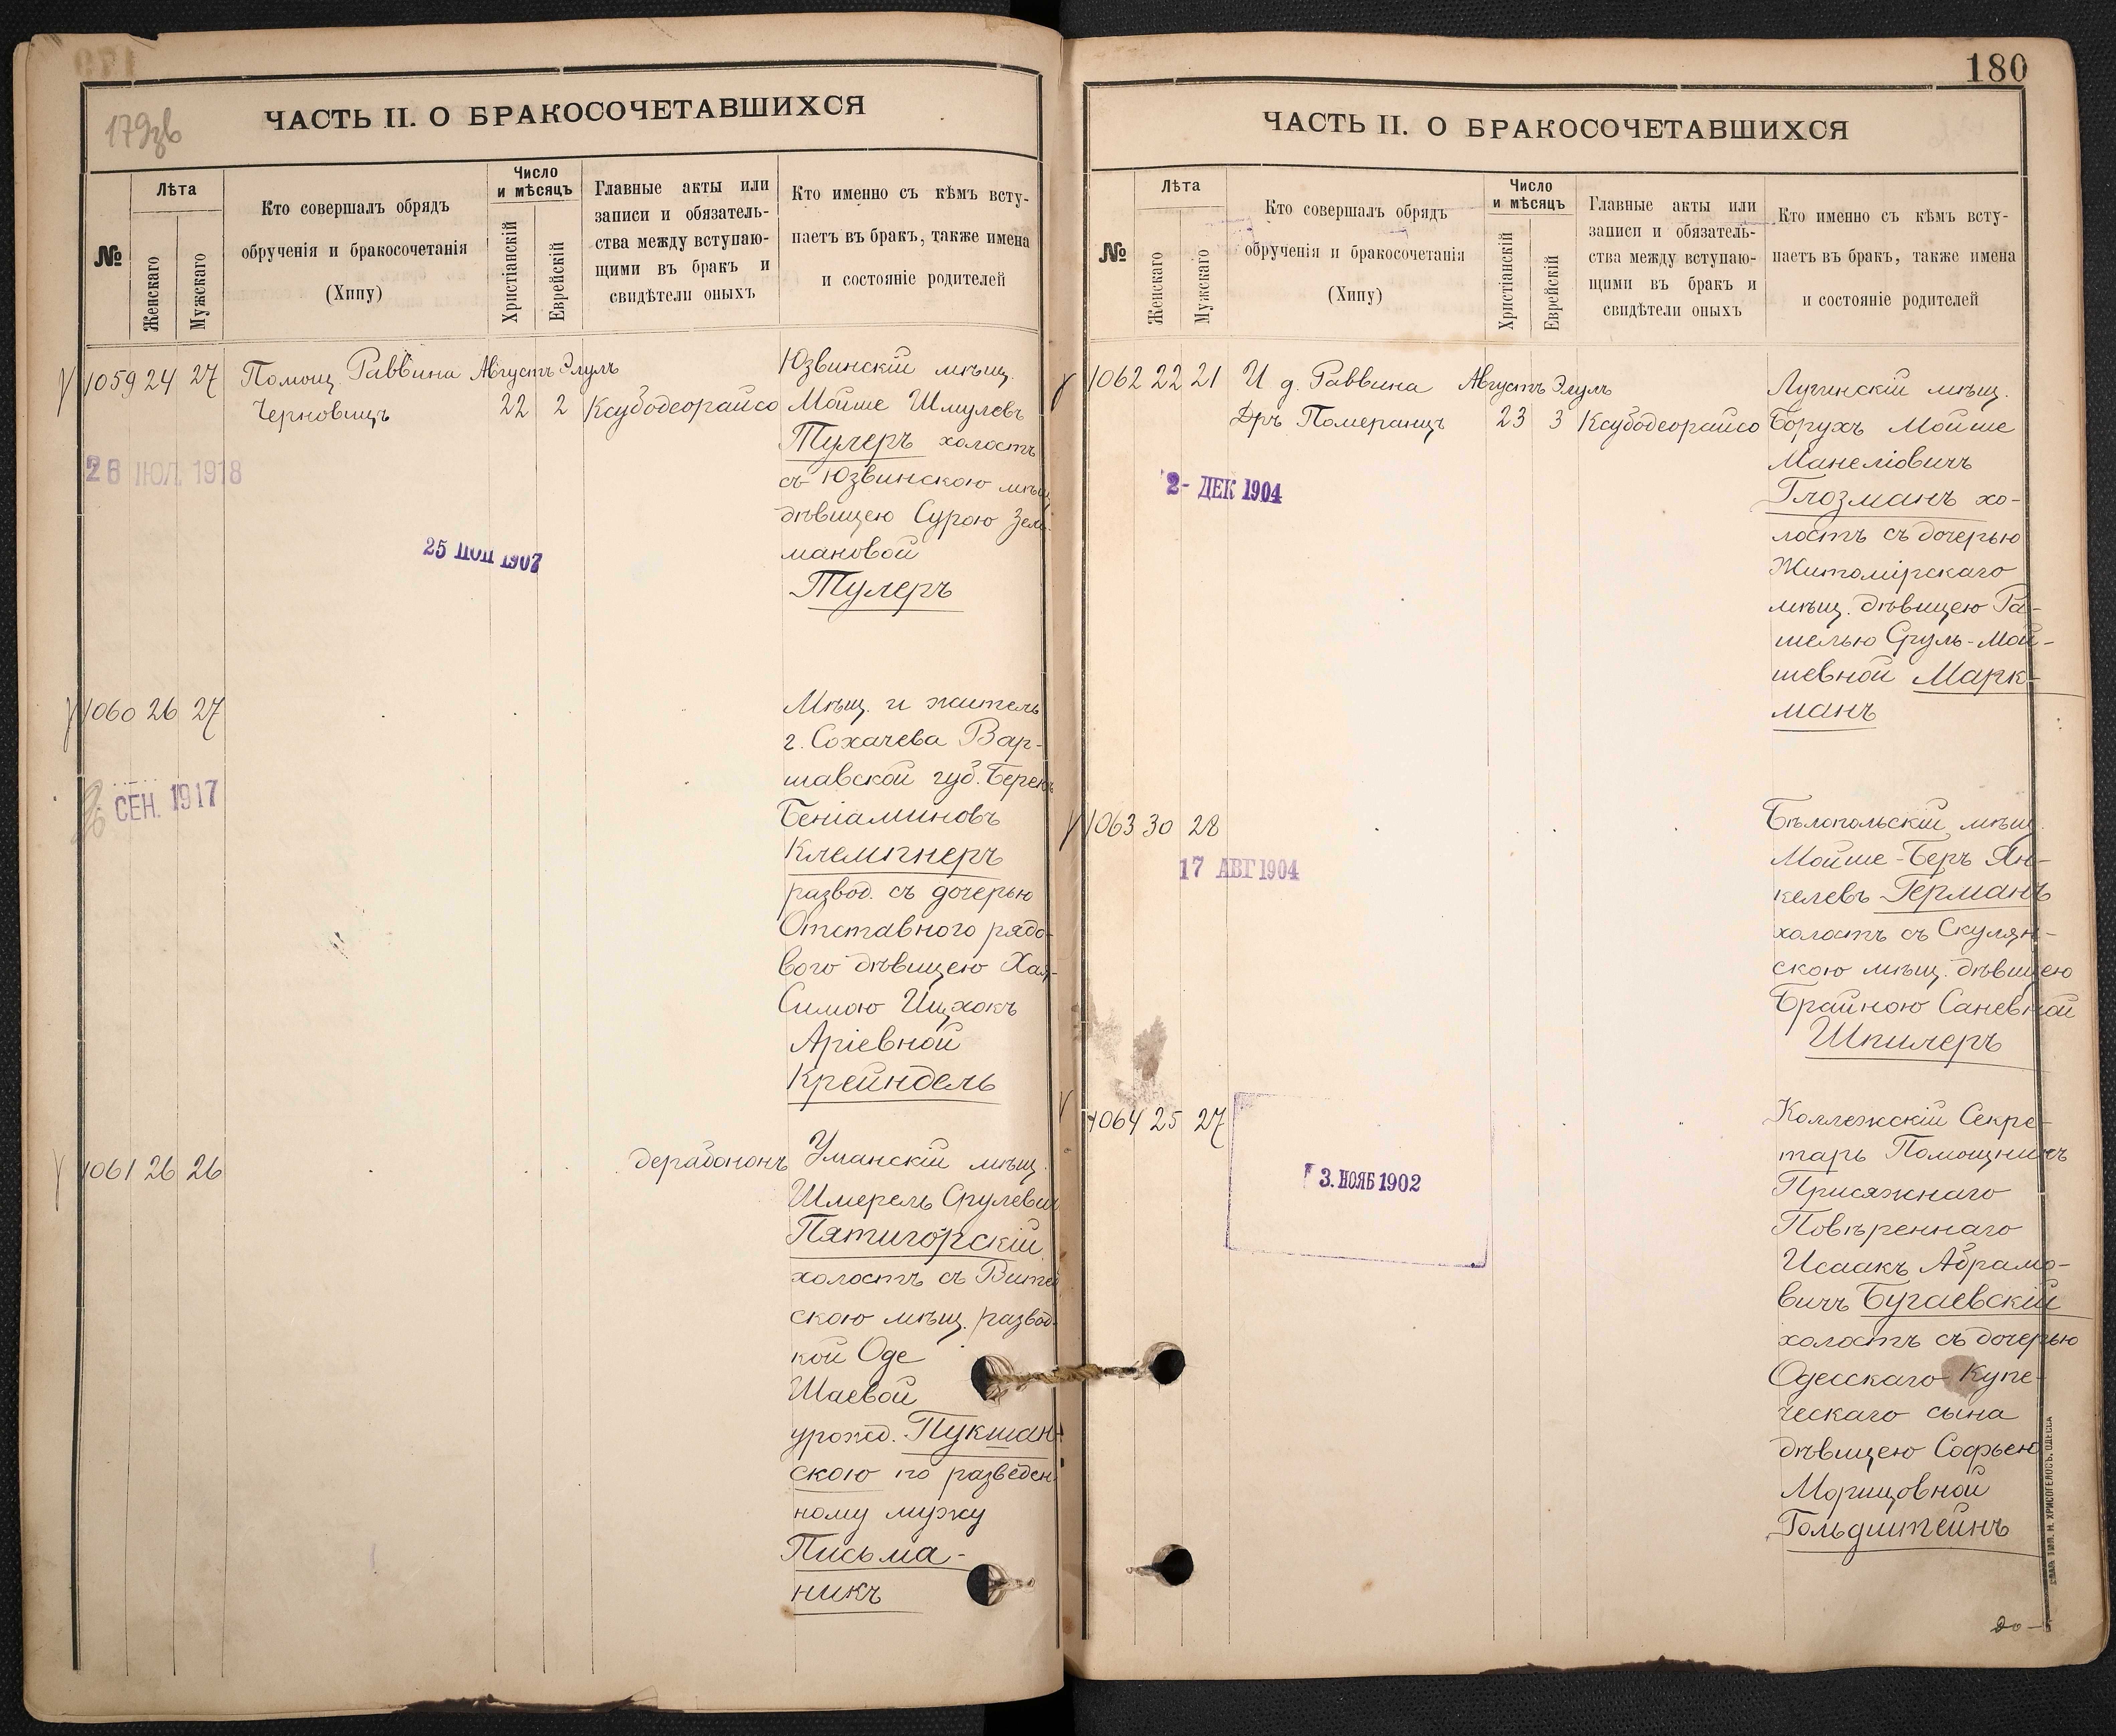 179зв
ЧАСТЬ II. О БРАКОСОЧЕТАВШИХСЯ
№
Лѣта
Женскаго
Мужскаго
Кто совершалъ обрядъ
обрученія и бракосочетанія
(Хипу)
Число
и мѣсяцъ
Христіанскій
Еврейскій
Главные акты или
записи и обязатель-
ства между вступаю-
щими въ бракъ и
свидѣтели оныхъ
Кто именно съ кѣмъ всту-
паетъ въ бракъ, также имена
и состояніе родителей
1059 24 27 Помощ. Раввина Августъ Элулъ
Черновицъ 22 2 Ксубодеорайсо
Юзвинскій мѣщ.
Мойше Шмулевъ
Тулеръ холостъ
съ Юзвинскою мѣщ.
дѣвицею Сурою Зель-
мановой
Тулеръ
26 ИЮЛ. 1918
25 1907
1060 26 27
Мѣщ. и житель
г. Сохачева Вар-
шавской губ. Берекъ
Беніаминовъ
Клемпнеръ
развод. съ дочерью
Отставного рядо-
вого дѣвицею Хая-
Симою Ицхокъ
Аріевной
Крейндель
СЕН. 1917
1061 26 26 дерабононъ
Уманскій мѣщ.
Шмерель Срулевич
Пятигорскій
холостъ съ
скою мѣщ. развод-
кой Оде
Шаевой
урожд. Пукшан-
скою по разведен-
ному мужу
Письма-
никъ
180
ЧАСТЬ II. О БРАКОСОЧЕТАВШИХСЯ
№
Лѣта
Женскаго
Мужскаго
Кто совершалъ обрядъ
обрученія и бракосочетанія
(Хипу)
Число
и мѣсяцъ
Христіанскій
Еврейскій
Главные акты или
записи и обязатель-
ства между вступаю-
щими въ бракъ и
свидѣтели оныхъ
Кто именно съ кѣмъ всту-
паетъ въ бракъ, также имена
и состояніе родителей
1062 22 21 И д. Раввина Августъ Элулъ
Дръ Померанцъ 23 3 Ксубодеорайсо
Лугинскій мѣщ.
Борухъ Мойше
Манеліовичъ
Глозманъ хо-
лостъ съ дочерью
Житомірскаго
мѣщ. дѣвицею Ра-
шелью Сруль-Мой-
шевной Марк-
манъ
2- ДЕК 1904
1063 30 28
Бѣлопольскій мѣщ.
Мойше-Беръ Ян-
келевъ Германъ
холостъ съ Скулян-
скою мѣщ. дѣвицею
Брайною Саневной
Шпилеръ
17 АВГ 1904
1064 25 27
Коллежскій Секре-
тарь Помощникъ
Присяжнаго
Повѣреннаго
Исаакъ Абрамо-
вичъ Бугаевскій
холостъ съ дочерью
Одесскаго Купе-
ческаго сына
дѣвицею Софьею
Морицовной
Гольдштейнъ
3. НОЯБ 1902
ТИП. Н. ХРИСОГЕЛОСЪ, ОДЕССА